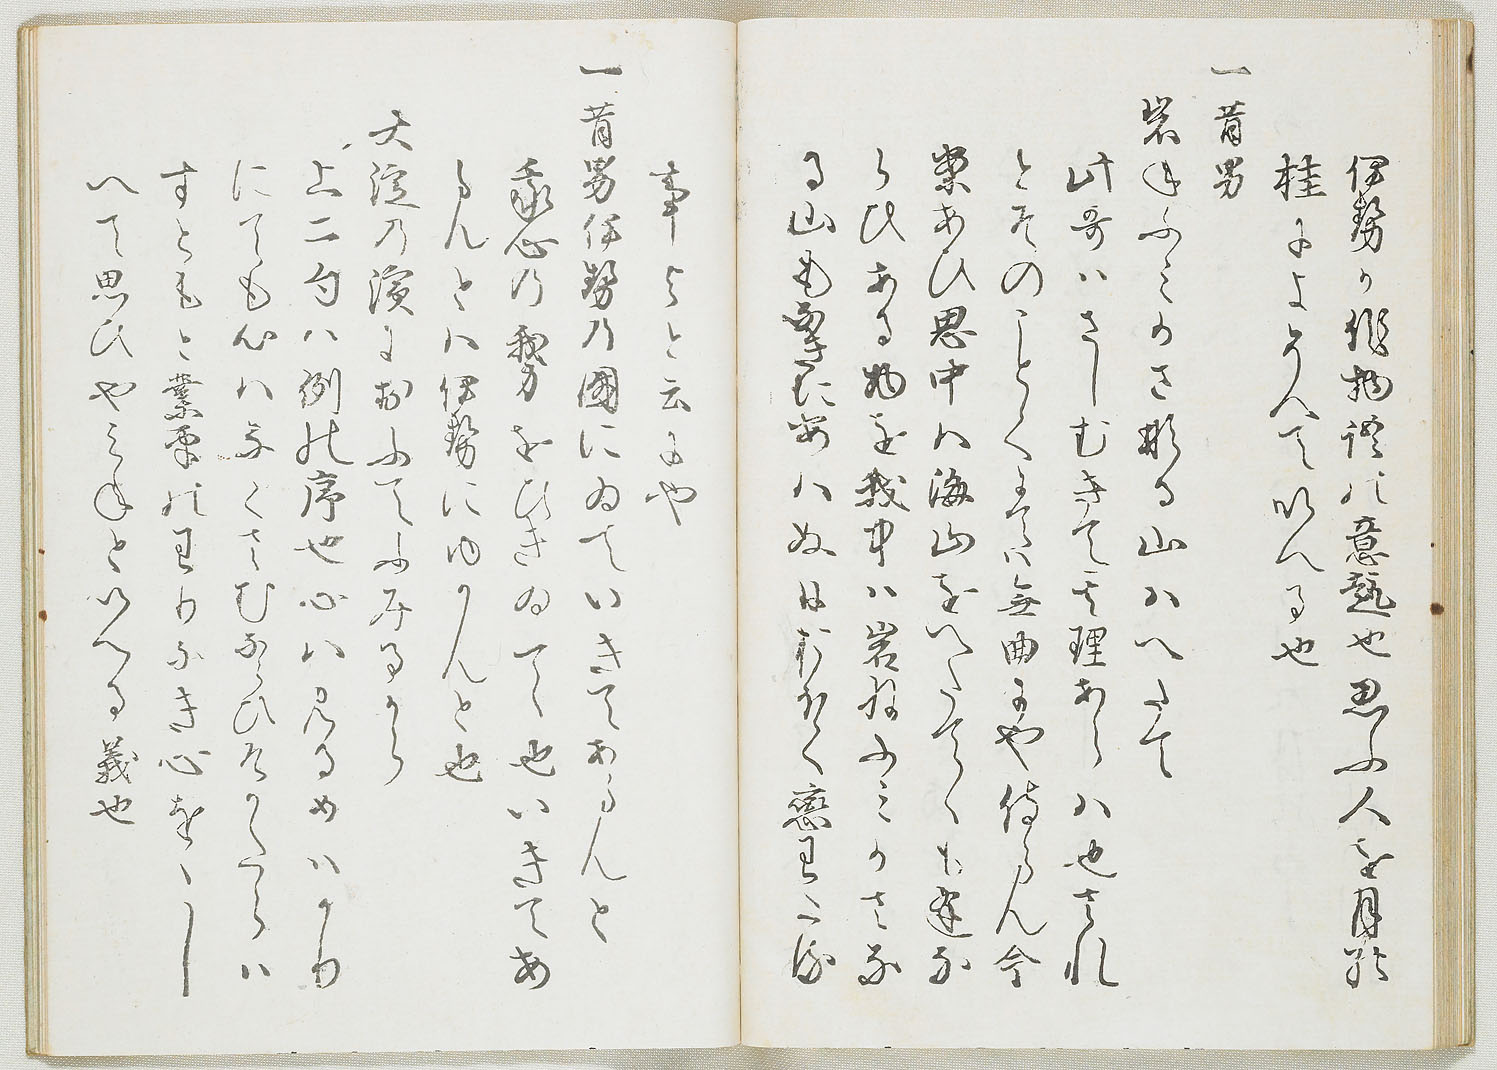 伊勢か作物語の意趣也思ふ人を月の
桂によそへていへる也
一昔男
岩ねふみかさなる山はへたて
此哥はさしむきて其理あらは也され
とそのことくまては無曲にや侍らん今
案あひ思中は海山をへたてゝも逢な
らひある物を我中は岩ねふみかさな
る山も隔たに
事よと云にや
一昔男伊勢の國にゐていきてあらんと
我心の勢をひきゐて也いきてあ
らんとは伊勢にゆかんと也
大淀の濱におふてふみるから
上二句は例の序也心は見るめはかり
にても心はなくさむならひそかたらは
すともと業平のわりなき心をくし
へて思ひやみねといへる義也